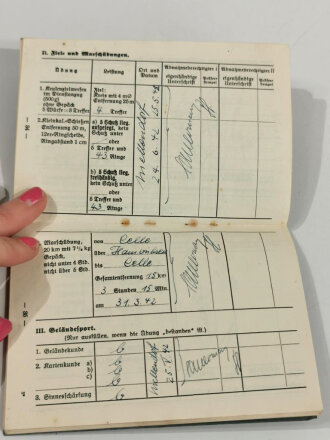 II. Ziele und Marschübungen.
Übung
Leistung
Ort und Datum
Abnahmeberechtigter I
eigenhändige Unterschrift
Prüfer-stempel
Abnahmeberechtigter II
eigenhändige Unterschrift
Prüfer-stempel
1. Keulenzielwerfen
im Dienstanzug
(500 g)
ohne Gepäck
5 Würfe = 3 Treffer
Ziel:
Kreis mit 4 m
Entfernung 25 m
4 Treffer
2. Kleinkal.-Schießen
Entfernung 50 m,
12er-Ringscheibe,
Ringabstand 1 cm
a) 5 Schuß lieg.
aufgelegt, kein
Schuß unter
oder
6 Treffer und
43 Ringe
b) 5 Schuß lieg.
freihändig,
kein Schuß
unter
oder
6 Treffer und
43 Ringe
24. 6. 42
Marschübung,
20 km mit 7½ kg
Gepäck,
nicht unter 4 Std.
nicht über 5 Std.
von Celle
über
bis Celle
Gesamtentfernung 15 km
3 Stunden 15 Min.
am 31.3.42
III. Geländesport.
(Nur ausfüllen, wenn die Übung „bestanden“ ist.)
1. Geländekunde
2. Kartenkunde a)
b)
c)
3. Sinnesschärfung